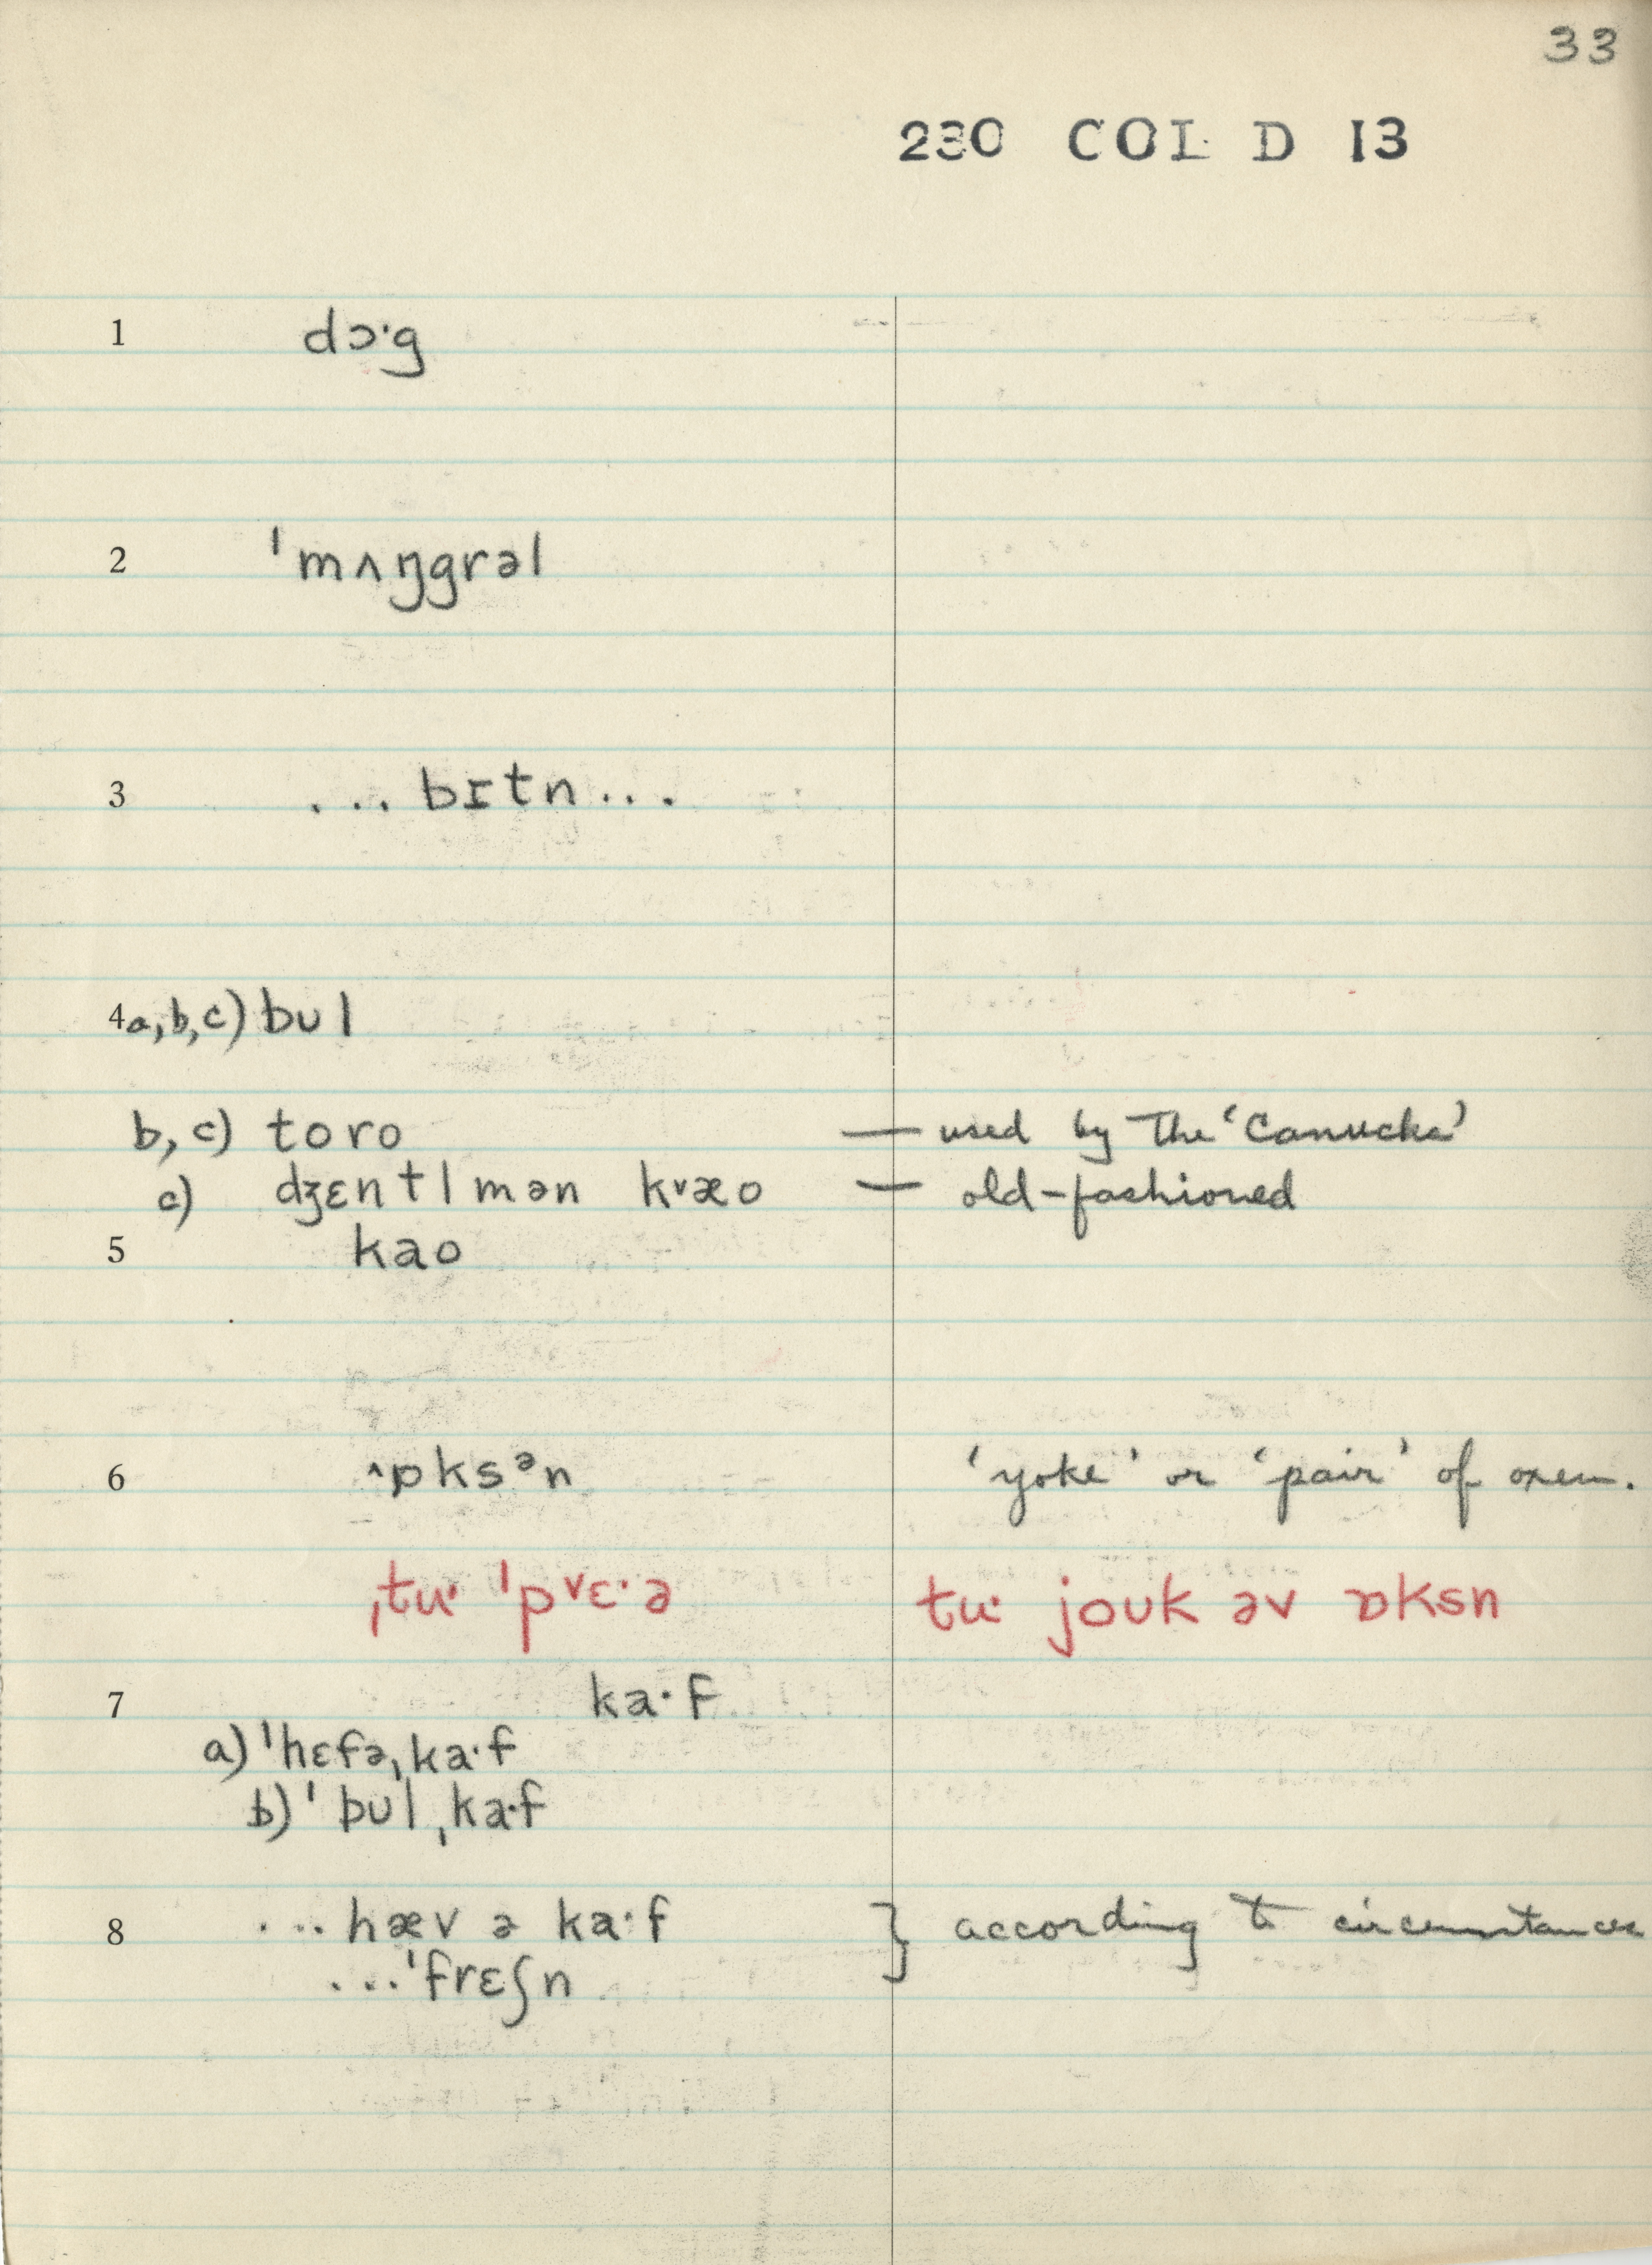 33
230 COL D 13
1 dɔ·g
2 ˈmʌŋgrəl
3 ... bɪtn ...
4 a,b,c) bʊl
b,c) toro — used by the ‘Canucks’
c) dʒɛntlmən k˅æo — old-fashioned
5 kao
6 ˄ɒksᵊn ‘yoke’ or ‘pair’ of oxen.
ˌtu· ˈp˅ɛ·ə tu· joʊk əv ɒksn
7 ka·f
a) ˈhɛfəˌka·f
b) ˈbʊlˌka·f
8 ... hæv ə ka·f } according to circumstances
... ˈfrɛʃn